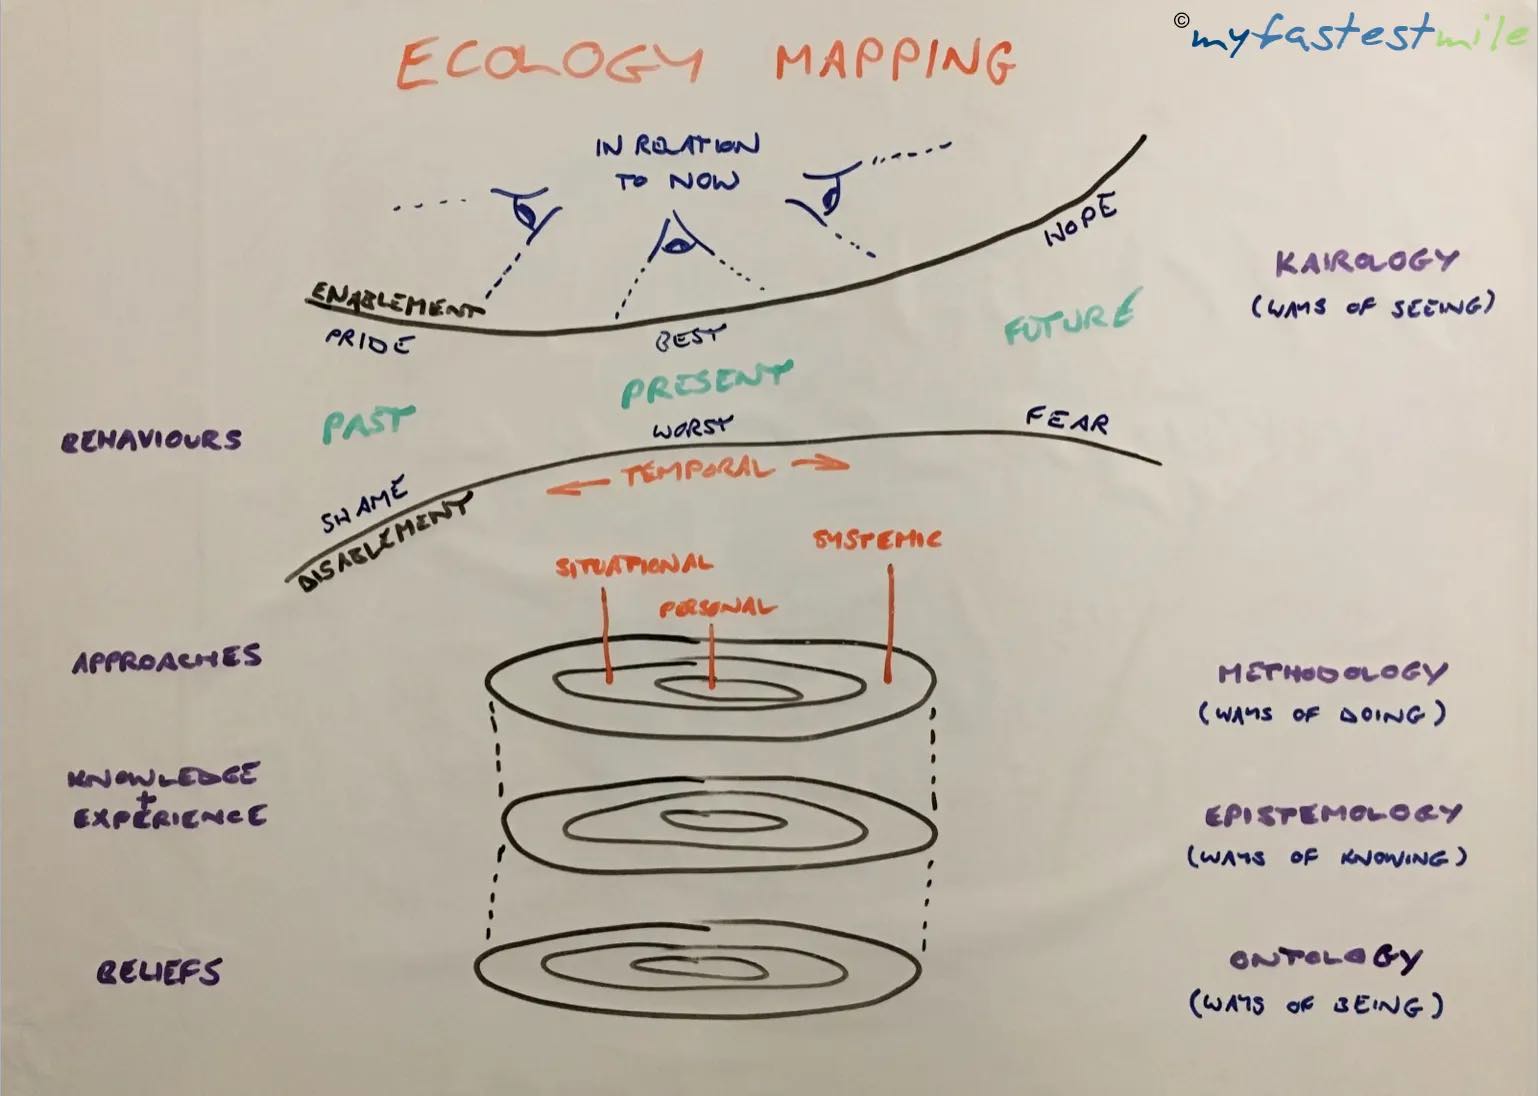 ©myfastestmile
ECOLOGY MAPPING
IN RELATION
TO NOW
ENABLEMENT
PRIDE
BEST
HOPE
KAIROLOGY
(WAYS OF SEEING)
PAST
PRESENT
FUTURE
BEHAVIOURS
SHAME
WORST
FEAR
← TEMPORAL →
DISABLEMENT
SITUATIONAL
PERSONAL
SYSTEMIC
APPROACHES
METHODOLOGY
(WAYS OF DOING)
KNOWLEDGE
+
EXPERIENCE
EPISTEMOLOGY
(WAYS OF KNOWING)
BELIEFS
ONTOLOGY
(WAYS OF BEING)